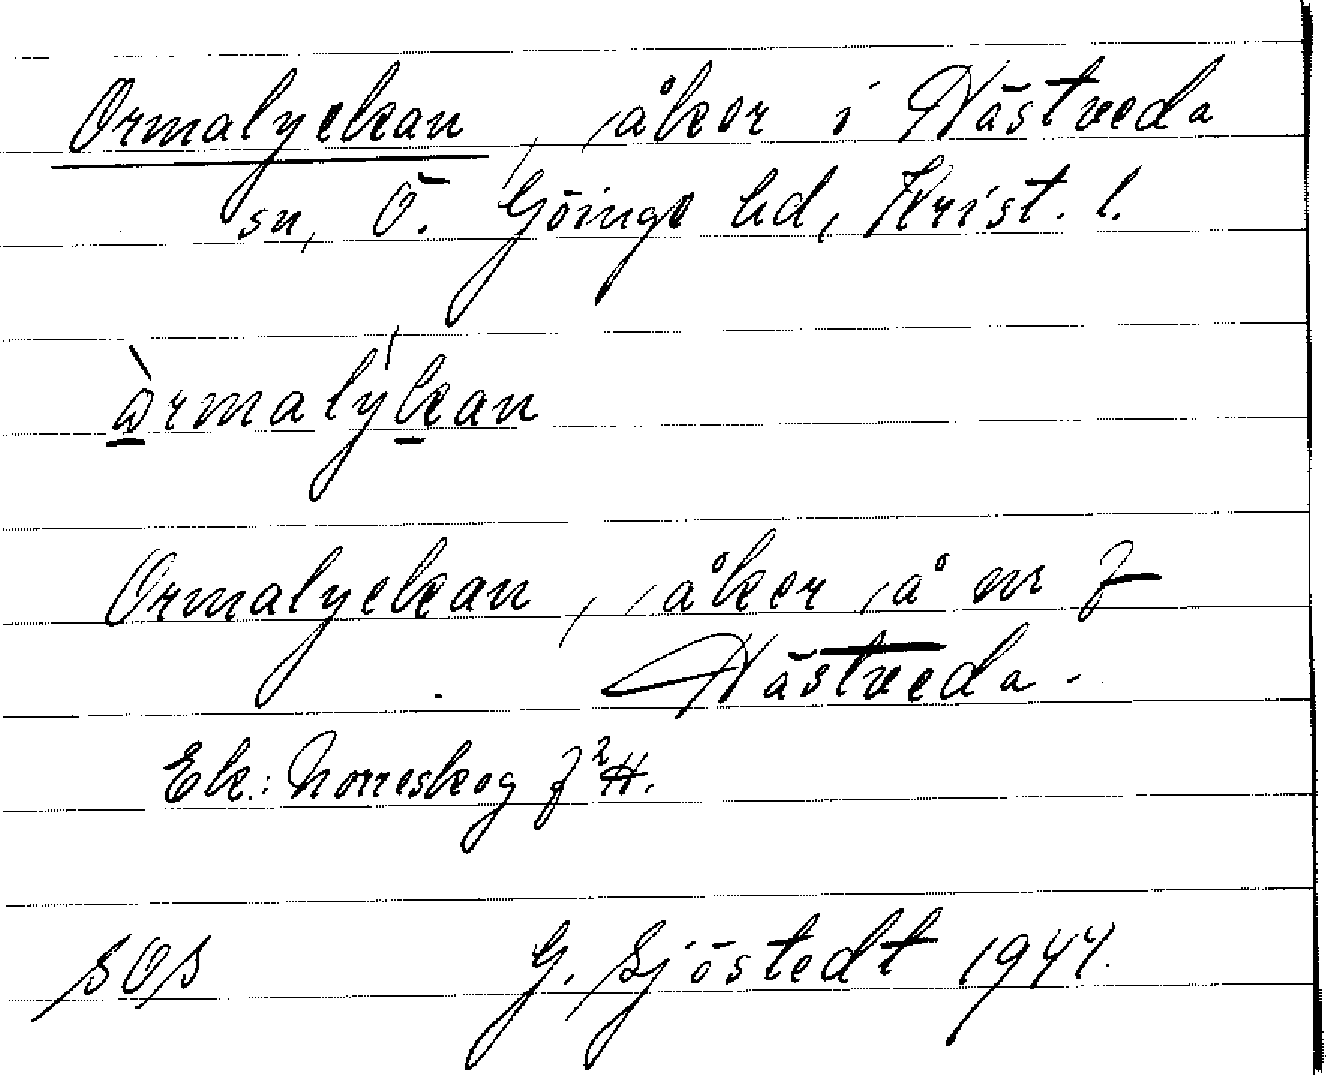 Ormalyckan, åker i Nästveda
sn, Ö. Göinge hd, Krist. l.
òrmalýkan
Ormalyckan, åker å nr 7
Nästveda.
Ek.: Norreskog 7²H.
SOS G. Sjöstedt 1944.